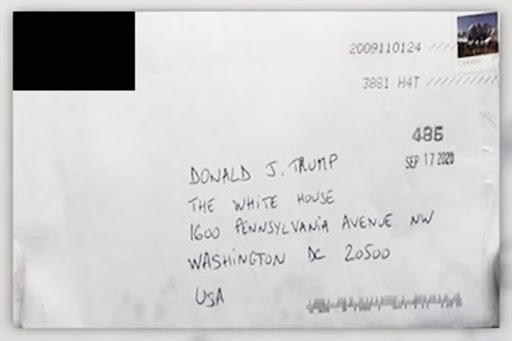 CANADA
2009110124
3881 H4T
486
SEP 17 2020
DONALD J. TRUMP
THE WHITE HOUSE
1600 PENNSYLVANIA AVENUE NW
WASHINGTON DC 20500
USA